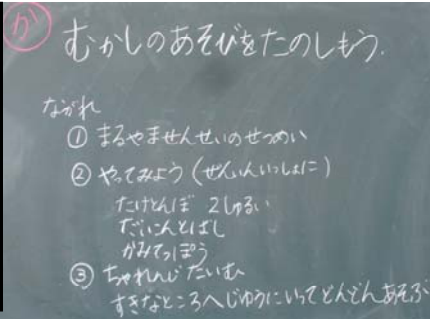 が むかしのあそびをたのしもう.
ながれ
① まるやませんせいのせつめい
② やってみよう(ぜんいんいっしょに)
たけとんぼ 2しゅるい
だいこんとばし
かみてっぽう
③ ちゃれんじたいむ
すきなところへじゆうにいってどんどんあそぶ